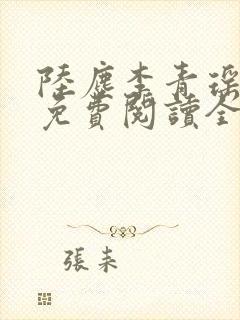 陸塵李青瑤
免費閱讀全
張耒